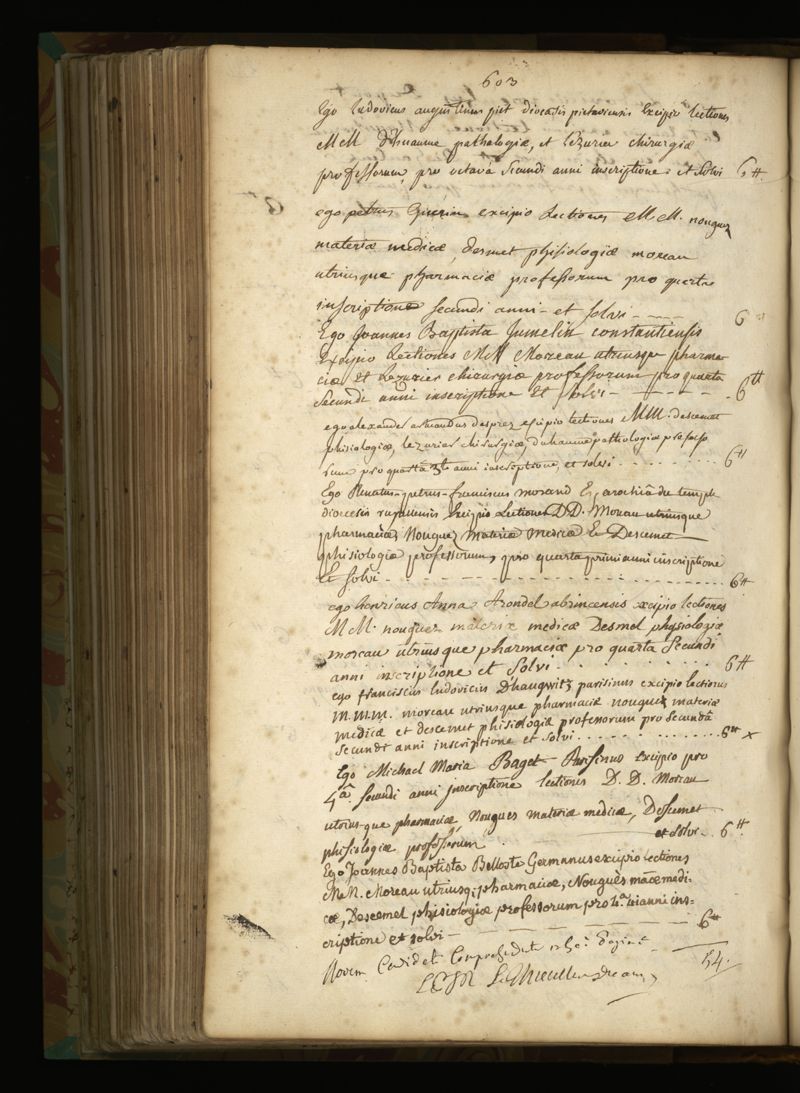 603
Ego ludovicus augustinus diocesis pictaviensis Excipio lectiones
MM Dhuaume pathologiæ, et Lezurier chirurgiæ
professorum, pro octavâ secundi anni inscriptione et solvi 6 ⁜
ego petrus excipio Lectiones MM. nouguez
materiæ medicæ, desmet phisiologiæ moreau
utriusque pharmaciæ professorum pro quarta
inscriptione secundi anni - et solvi - - - - 6
Ego Joannes Baptista Jumelin constantiensis
Excipio Lectiones MM Moreau utriusque pharma-
ciæ et Lezurier chirurgiæ professorum pro quarta
secundi anni inscriptione Et solvi - - - - - 6 ⁜
ego alexander armandus desprez excipio lectiones MM. descemet
phisiologiæ, lezurier chirurgiæ, duhaume pathologiæ professo
rum pro quartâ anni inscriptione, et solvi . . . . . . . . 6 ⁜
Ego Renatus-petrus-franciscus morand Ex parochiâ du temple
diocesis Excipio Lectiones DD. Moreau utriusque
pharmaciæ, Nouguez Materiæ Medicæ & Descemet
phisiologiæ professorum, pro quarta primi anni inscriptione
Et solvi - - - - - - - - - - - - - - - - 6 ⁜
ego henricus Anna Arondel abrincensis excipio lectiones
MM. nouguez materiæ medicæ Desmet physiologiæ
moreau utriusque pharmaciæ pro quarta secundi
anni inscriptione et solvi . . . . . . . . 6 ⁜
ego franciscus ludovicus D'haugwitz parisinus excipio lectiones
m.m.m. moreau utriusque pharmaciæ nouguez materiæ
medicæ et descemet phisiologiæ professorum pro secundâ
secundi anni inscriptione et solvi . . . . . . . . . . 6 ⁜ x
Ego Michael Maria Baget Parisinus Excipio pro
4â secundi anni inscriptione lectiones D. D. Moreau
utrius-que pharmaciæ Nougues materiæ medicæ, Descemet
et solvi - 6 ⁜
phisiologiæ professorum
Ego Joannes Baptista Belloste Germanus excipio lectiones
M.M. Moreau utriusq; pharmaciæ, Nouguès maæ medi-
cæ, Descemet phisiologiæ professorum pro 4â anni ins=
criptione et solvi - - - - - 6 ⁜
Novem
54.